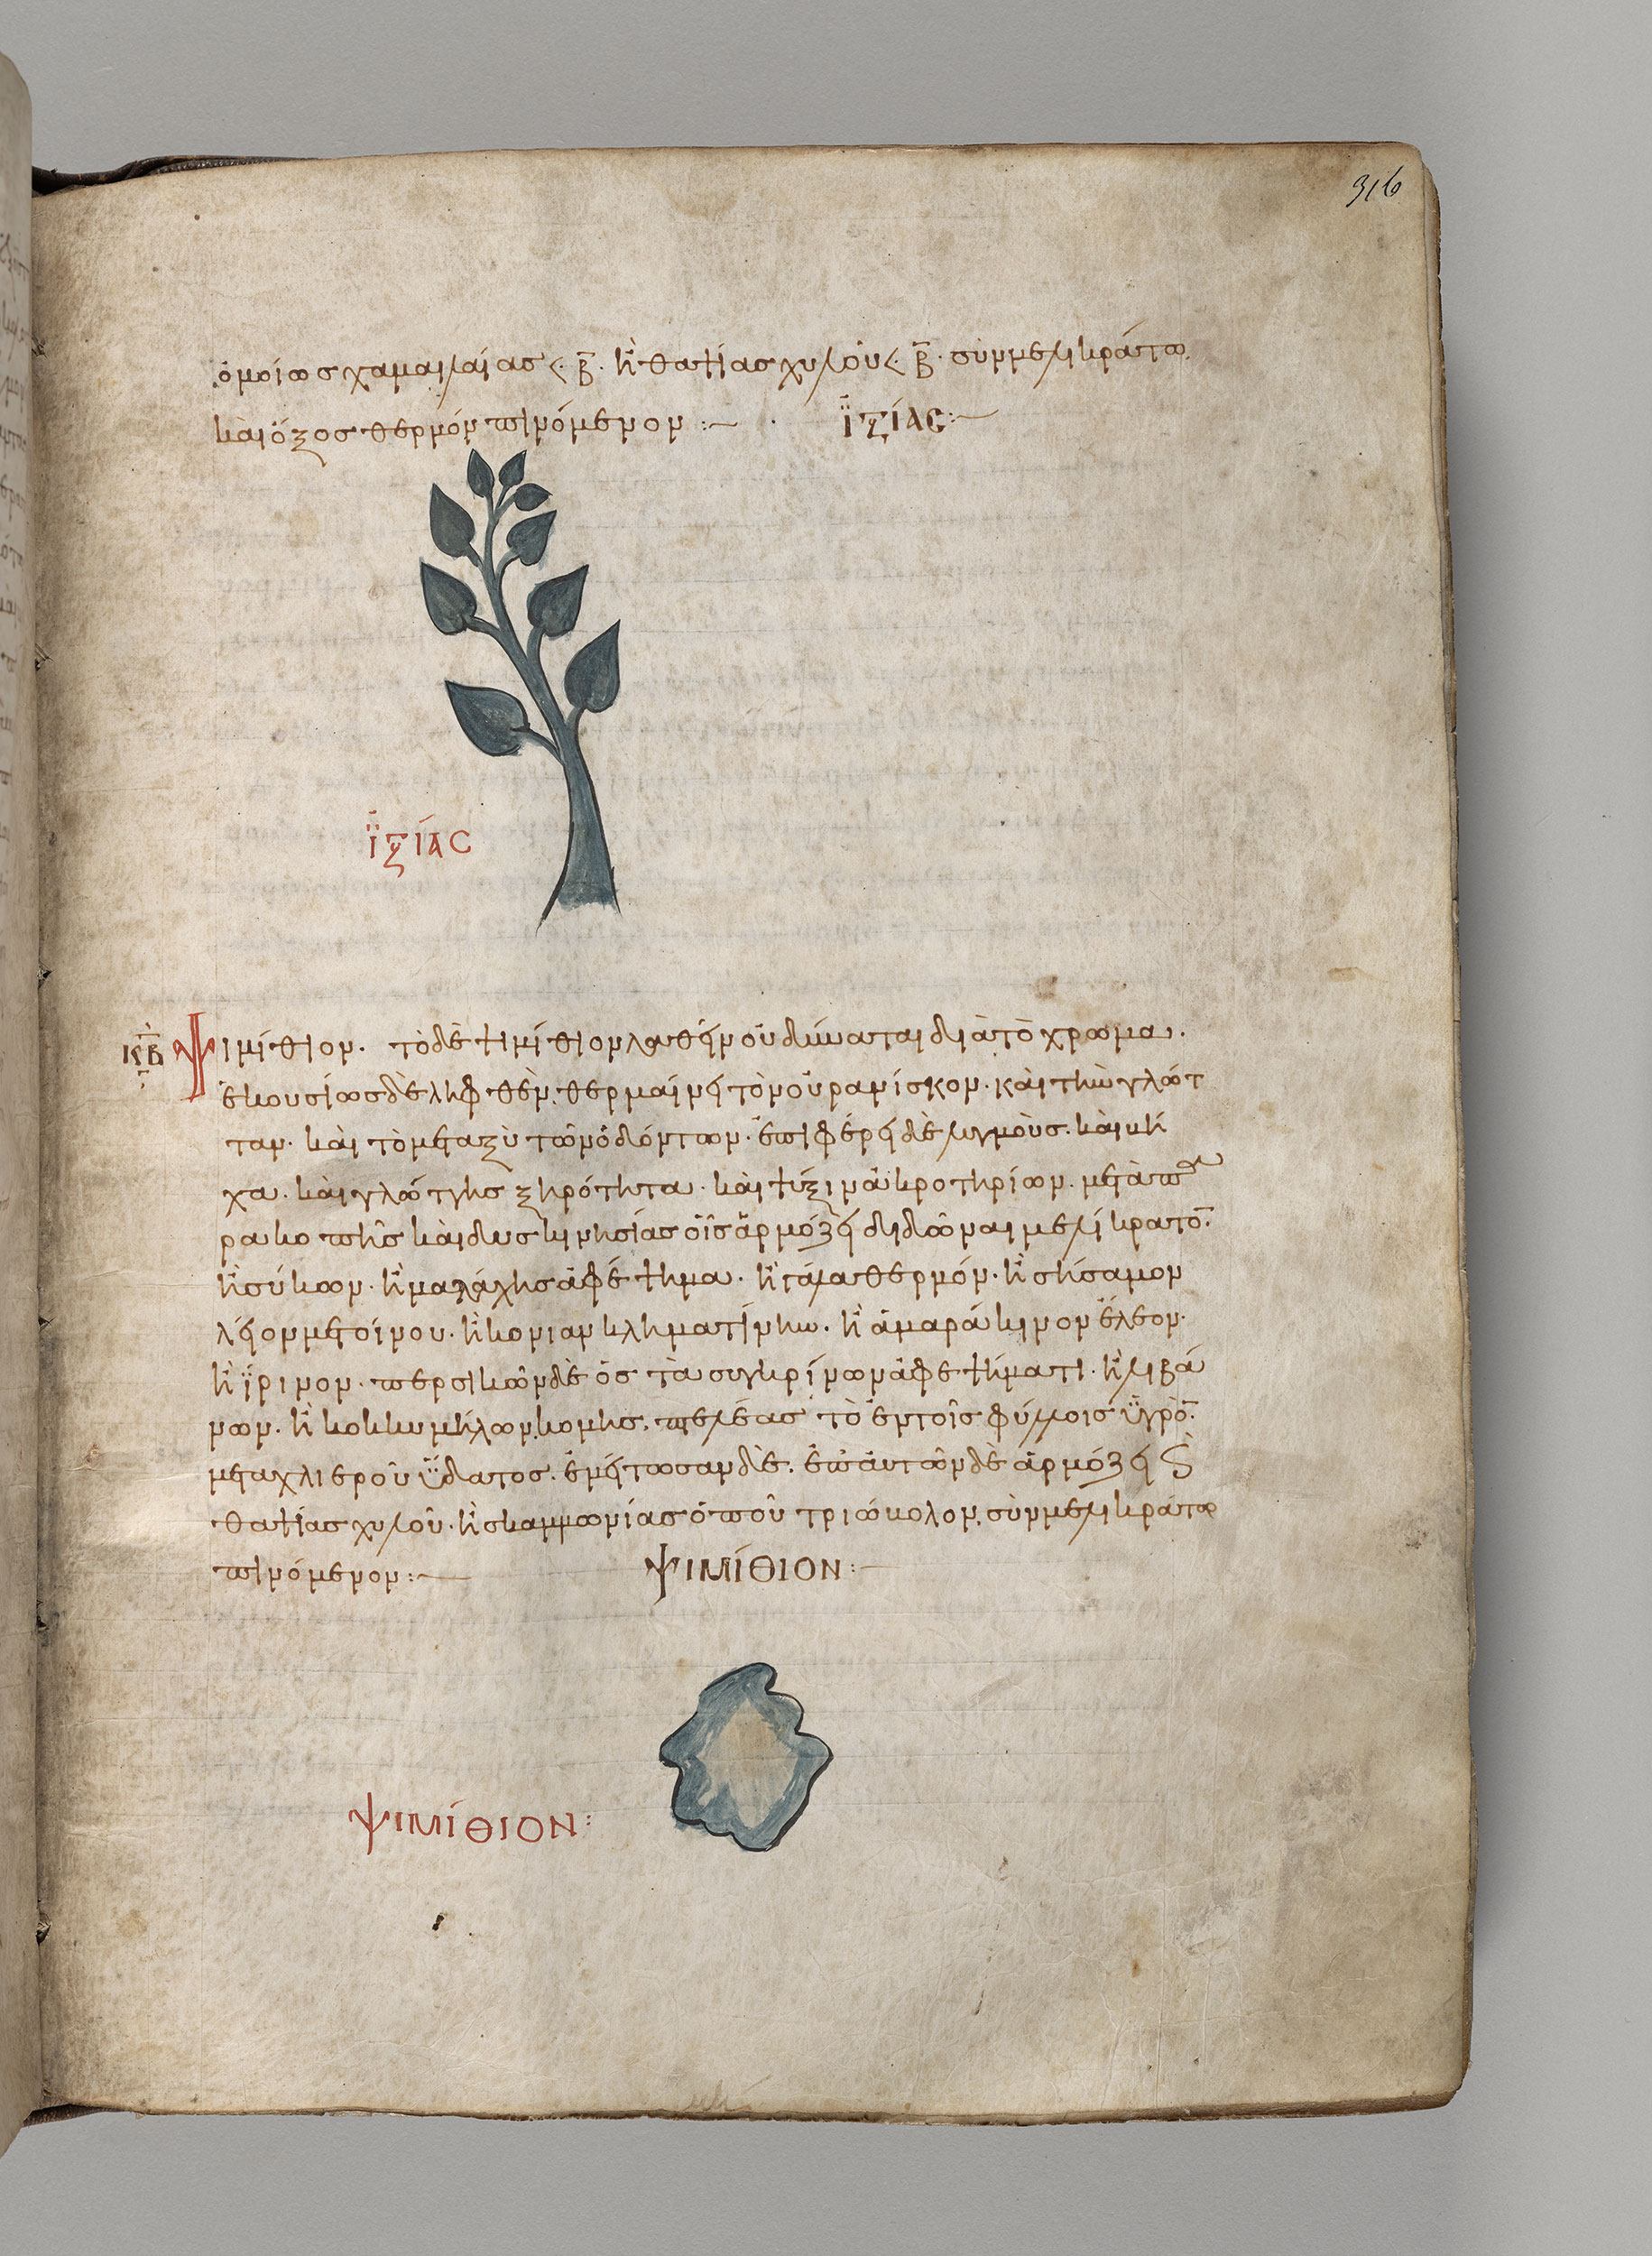 316
ὁμοίως χαμαιλαίας <. β̅. κ̀ θαψίας χυλοῦ <. β̅. σὺν μελικράτω.
καὶ ὄξος θερμὸν πινόμενον :— ἰ̈ξίας :—
ἰ̈ξίας
κβ ψιμίθιον. τὸ δὲ ψιμίθιον λαθεῖν οὐ δύναται διὰ τὸ χρῶμα.
ἑκουσίως δὲ ληφθὲν. θερμαίνει τὸν οὐρανίσκον. καὶ τὴν γλώτ
ταν. καὶ τὸ μεταξὺ τῶν ὀδόντων. ἐπιφέρει δὲ λυγμοὺς. καὶ βῆ
χα. καὶ γλώττης ξηρότητα. καὶ ψύξιν ἀκροτηρίων. μετὰ
ρακοπῆς καὶ δυσκινησίας οἷς ἁρμόζει διδόναι μελίκρατο̅.
κ̀ σύκων. κ̀ μαλάχης ἀφέψημα. κ̀ γάλα θερμόν. κ̀ σήσαμον
λεῖον μετ οἴνου. κ̀ κονίαν κληματίνην. κ̀ ἀμαράκινον ἔλεον.
κ̀ ἴ̈ρινον. περσικῶν δὲ ὀστὰ συγκρίνων ἀφεψήματι. κ̀ λιβά
νων. κ̀ κοκκυμήλων κόμης. πελέας τὸ ἐν τοῖς φύλλοις ὑ̈γρὸ̅.
μετα χλιεροῦ ὕ̈δατος. ἐμείτωσαν δὲ. ἐπ αὐτῶν δὲ ἁρμόζει ϛ̀
θαψίας χυλοῦ. κ̀ σκαμμωνίας ὀποῦ τριώκολον. σὺν μελικράτω
πινόμενον :— ΨΙΜΙΘΙΟΝ :—
ΨΙΜΙΘΙΟΝ :